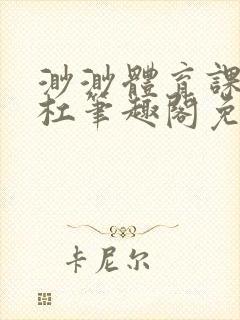 渺渺體育課
杜筆趣閣免
卡尼尔